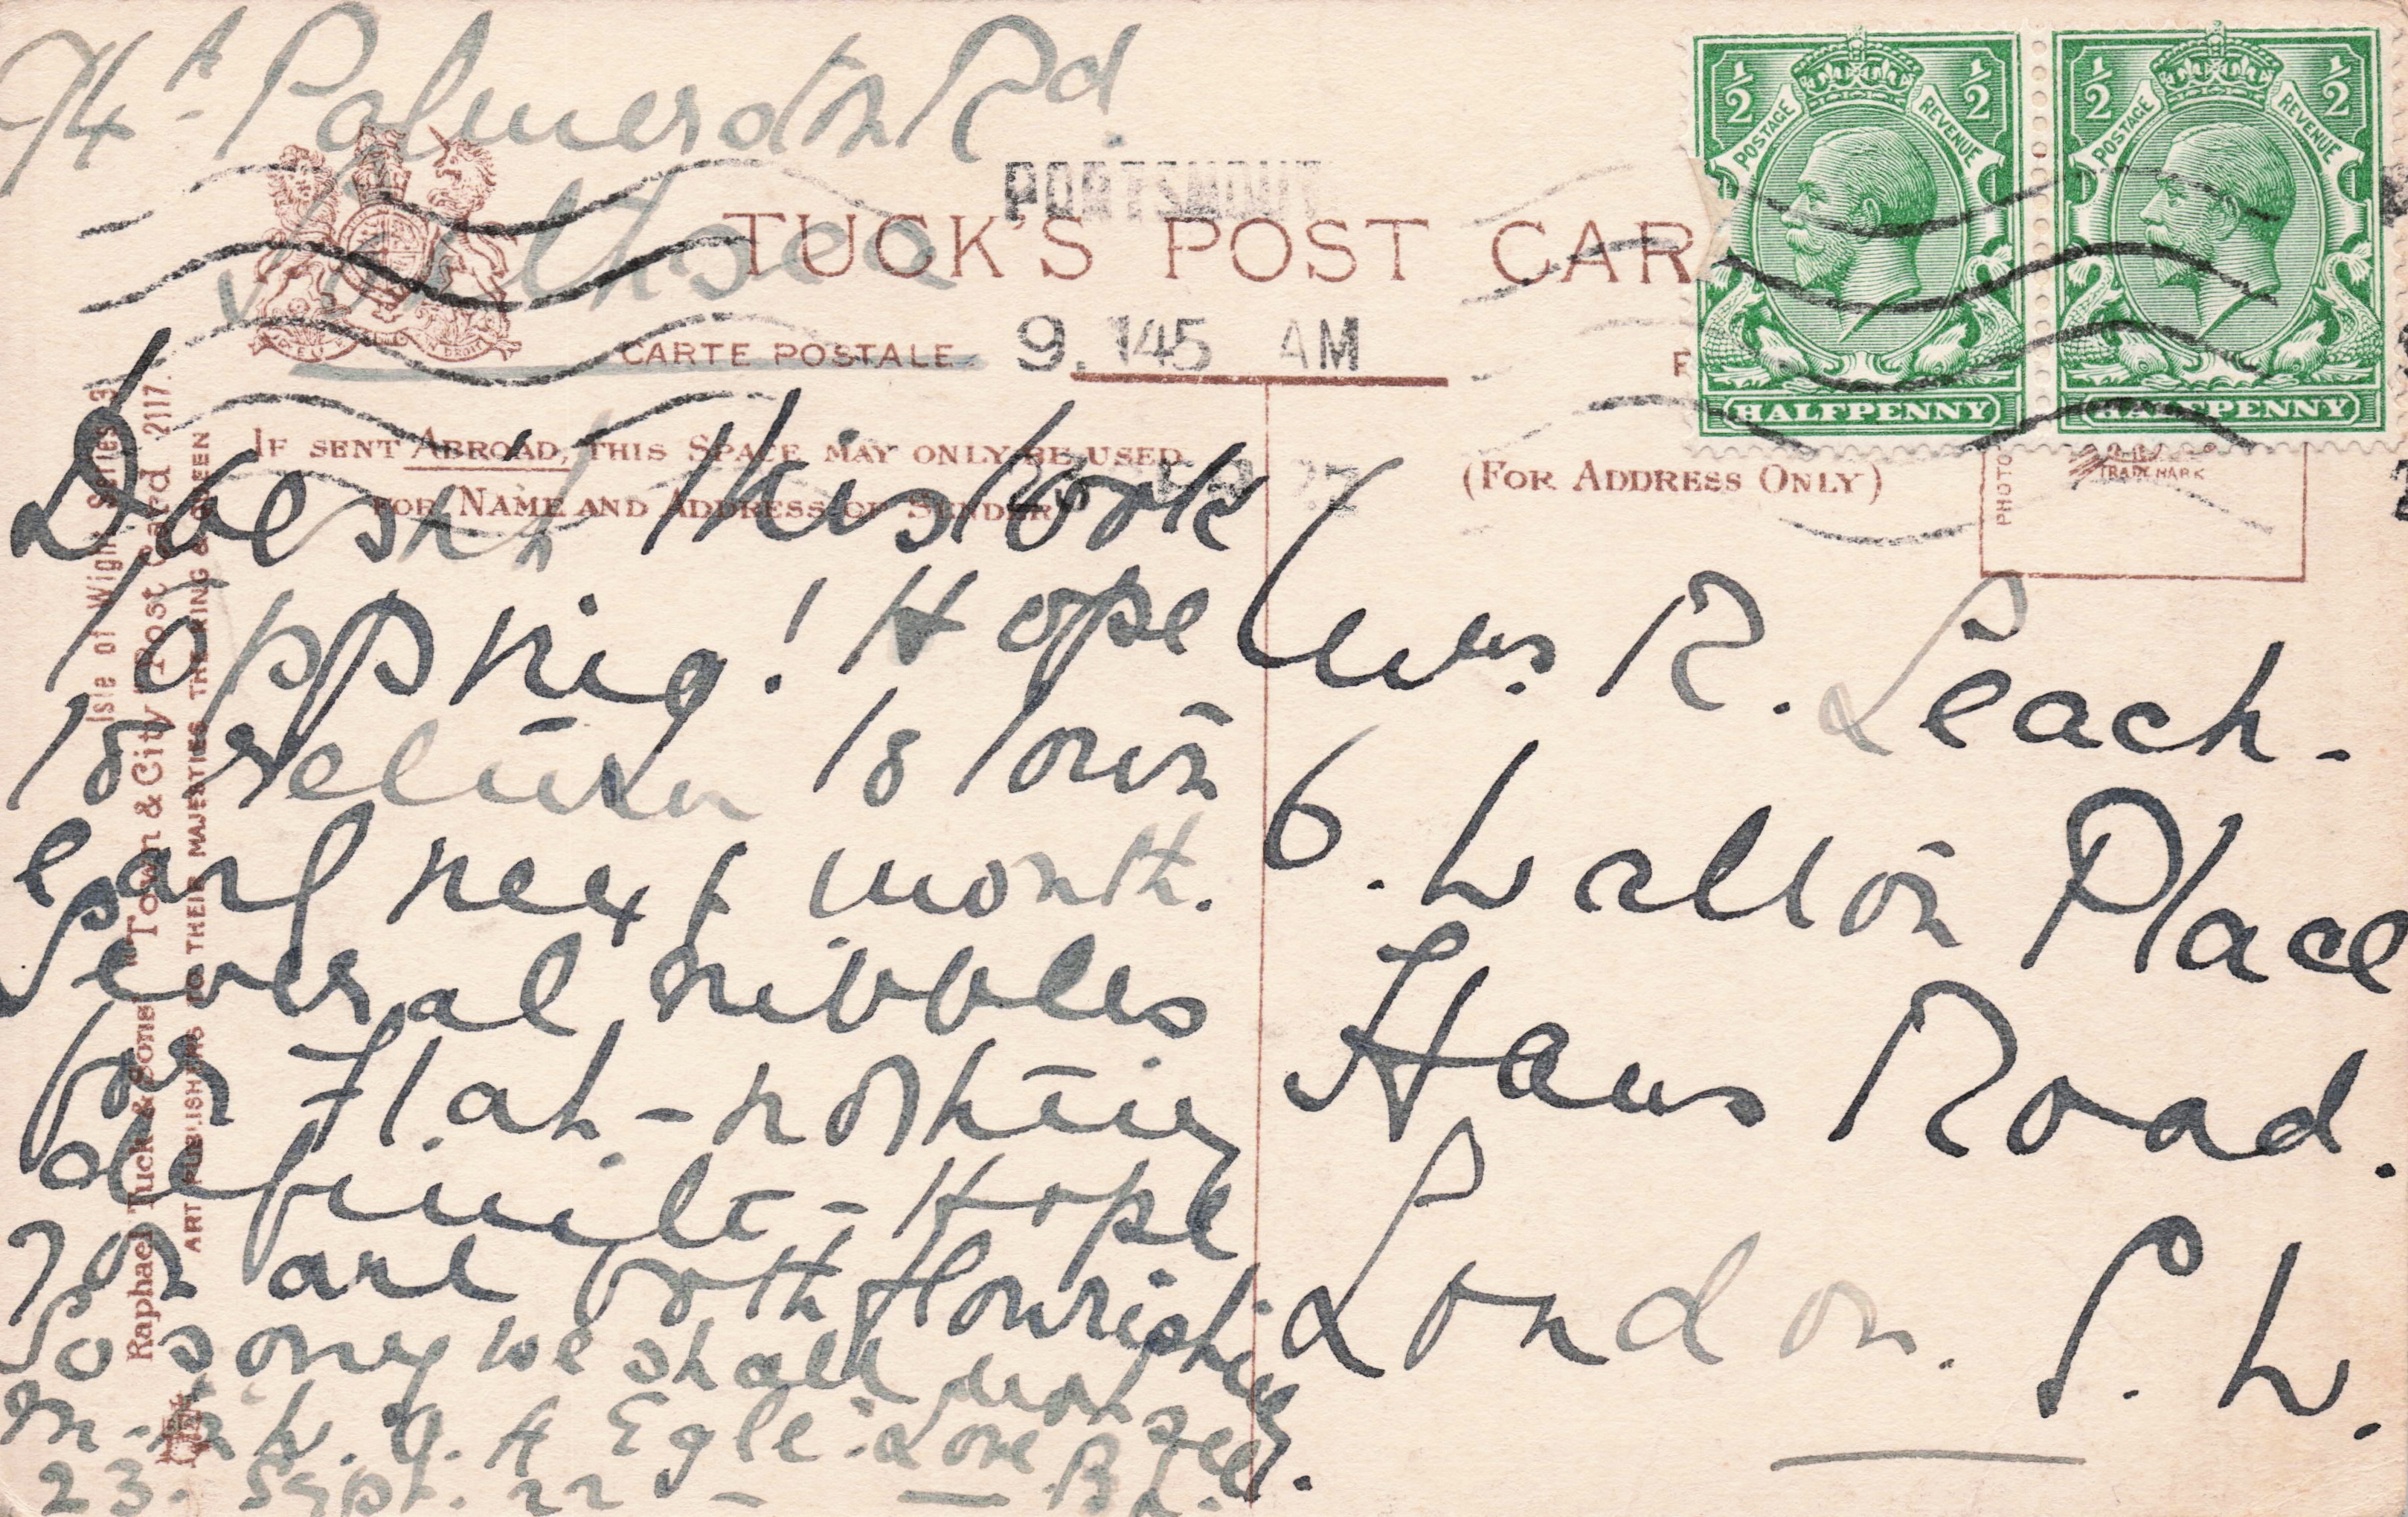 74A Palmerston Rd.
Southsea
PORTSMOUTH
TUCK'S POST CAR
CARTE POSTALE
9.145 AM
IF SENT ABROAD, THIS SPACE MAY ONLY BE USED
FOR NAME AND ADDRESS OF SENDER
(FOR ADDRESS ONLY)
½ POSTAGE REVENUE ½
HALFPENNY
½ POSTAGE REVENUE ½
HALFPENNY
PHOTO
TRADE MARK
Doesn't this look
topping! Hope
to return to town
early next month.
Several nibbles
for Flat - nothing
definite - Hope
you are both flourishing.
So sorry we shall not see
M. & A Egle. Love B
23. Sept. 22
Mrs. R. Leach.
6. Walton Place
Hans Road.
London. S. W.
Isle of Wight Series 3
Raphael Tuck & Sons' "Town & City" Post Card 2117.
ART PUBLISHERS TO THEIR MAJESTIES THE KING & QUEEN